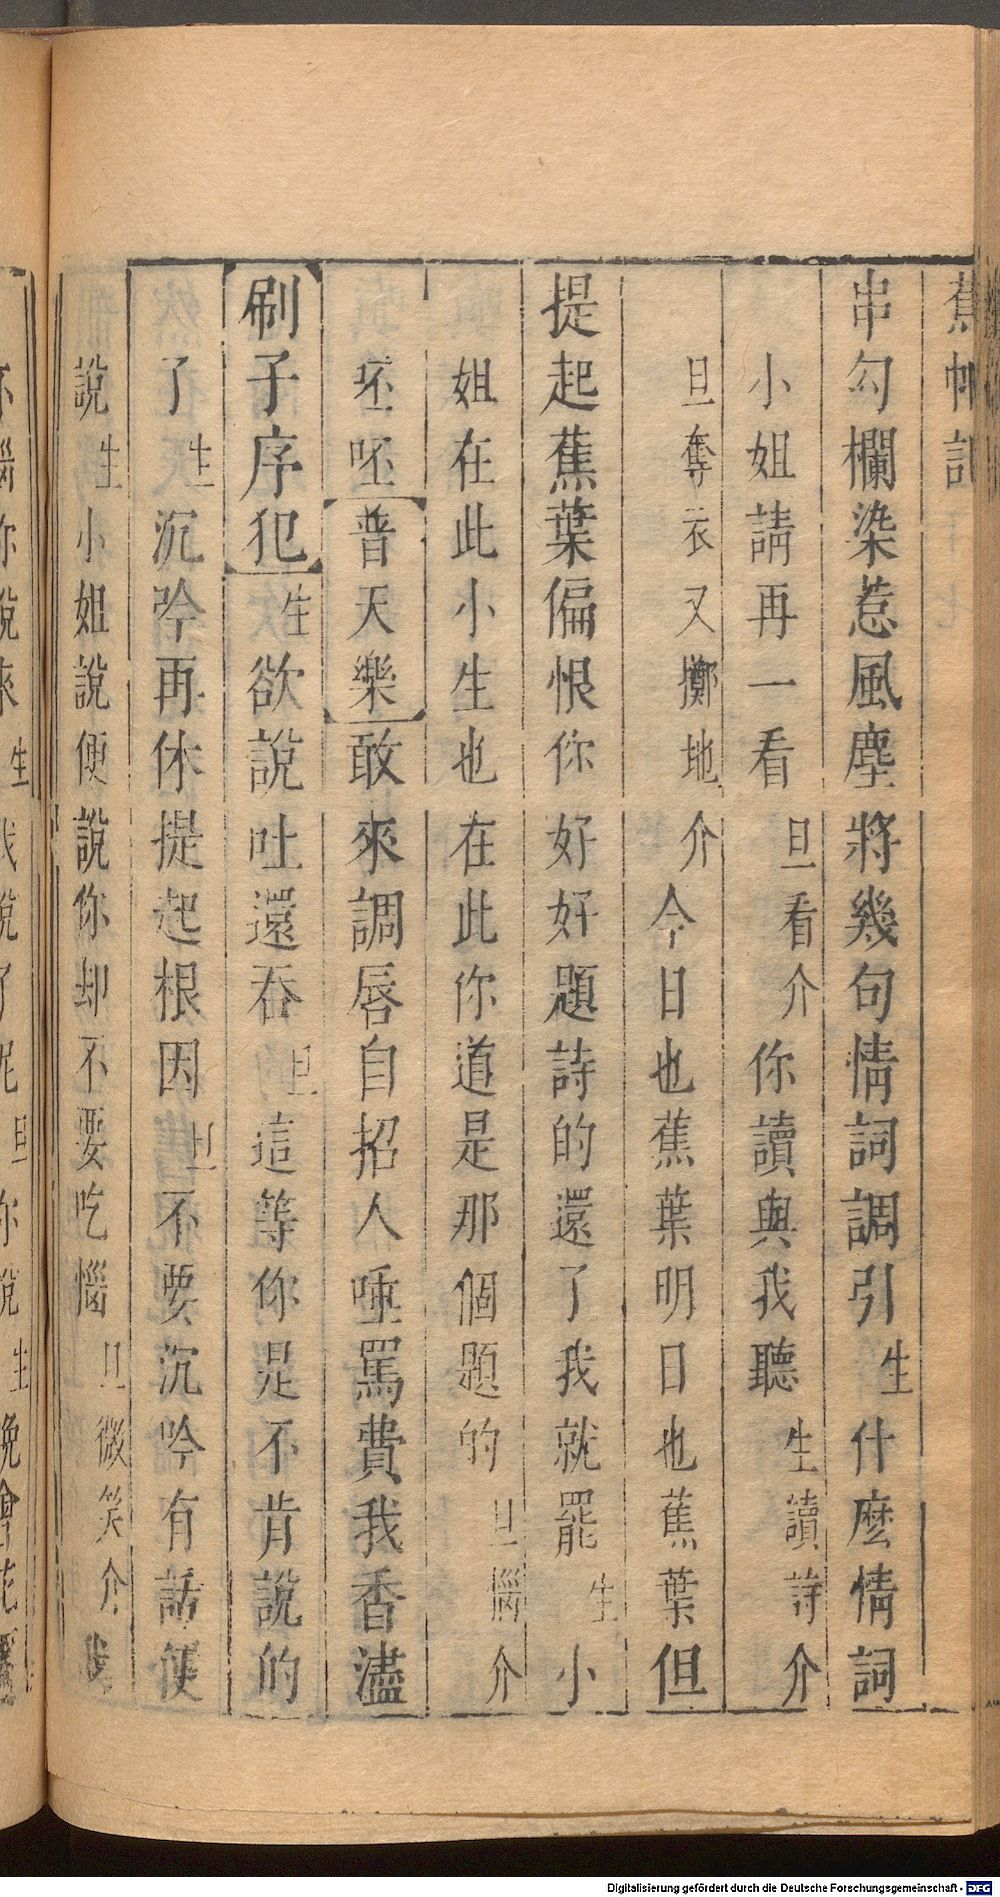 蕉帕記
串勾欄染惹風塵將幾句情詞調引生什麽情詞
小姐請再一看旦看介你讀與我聽生讀詩介
旦奪衣又擲地介今日也蕉葉明日也蕉葉但
提起蕉葉偏恨你好好題詩的還了我就罷生小
姐在此小生也在此你道是那個題的旦惱介
呸呸普天樂敢來調唇自招人唾罵費我香濾
刷子序犯生欲說吐還吞旦這等你是不肯說的
了生沉吟再休提起根因旦不要沉吟有話便
說生小姐說便說你却不要吃惱旦微笑介我
惱你說來生我說了呢旦你說生晚會花
Digitalisierung gefördert durch die Deutsche Forschungsgemeinschaft - DFG